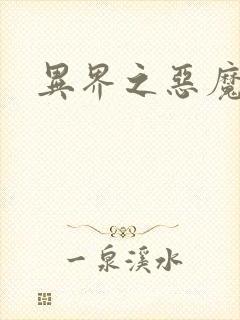 異界之惡魔
一泉溪水